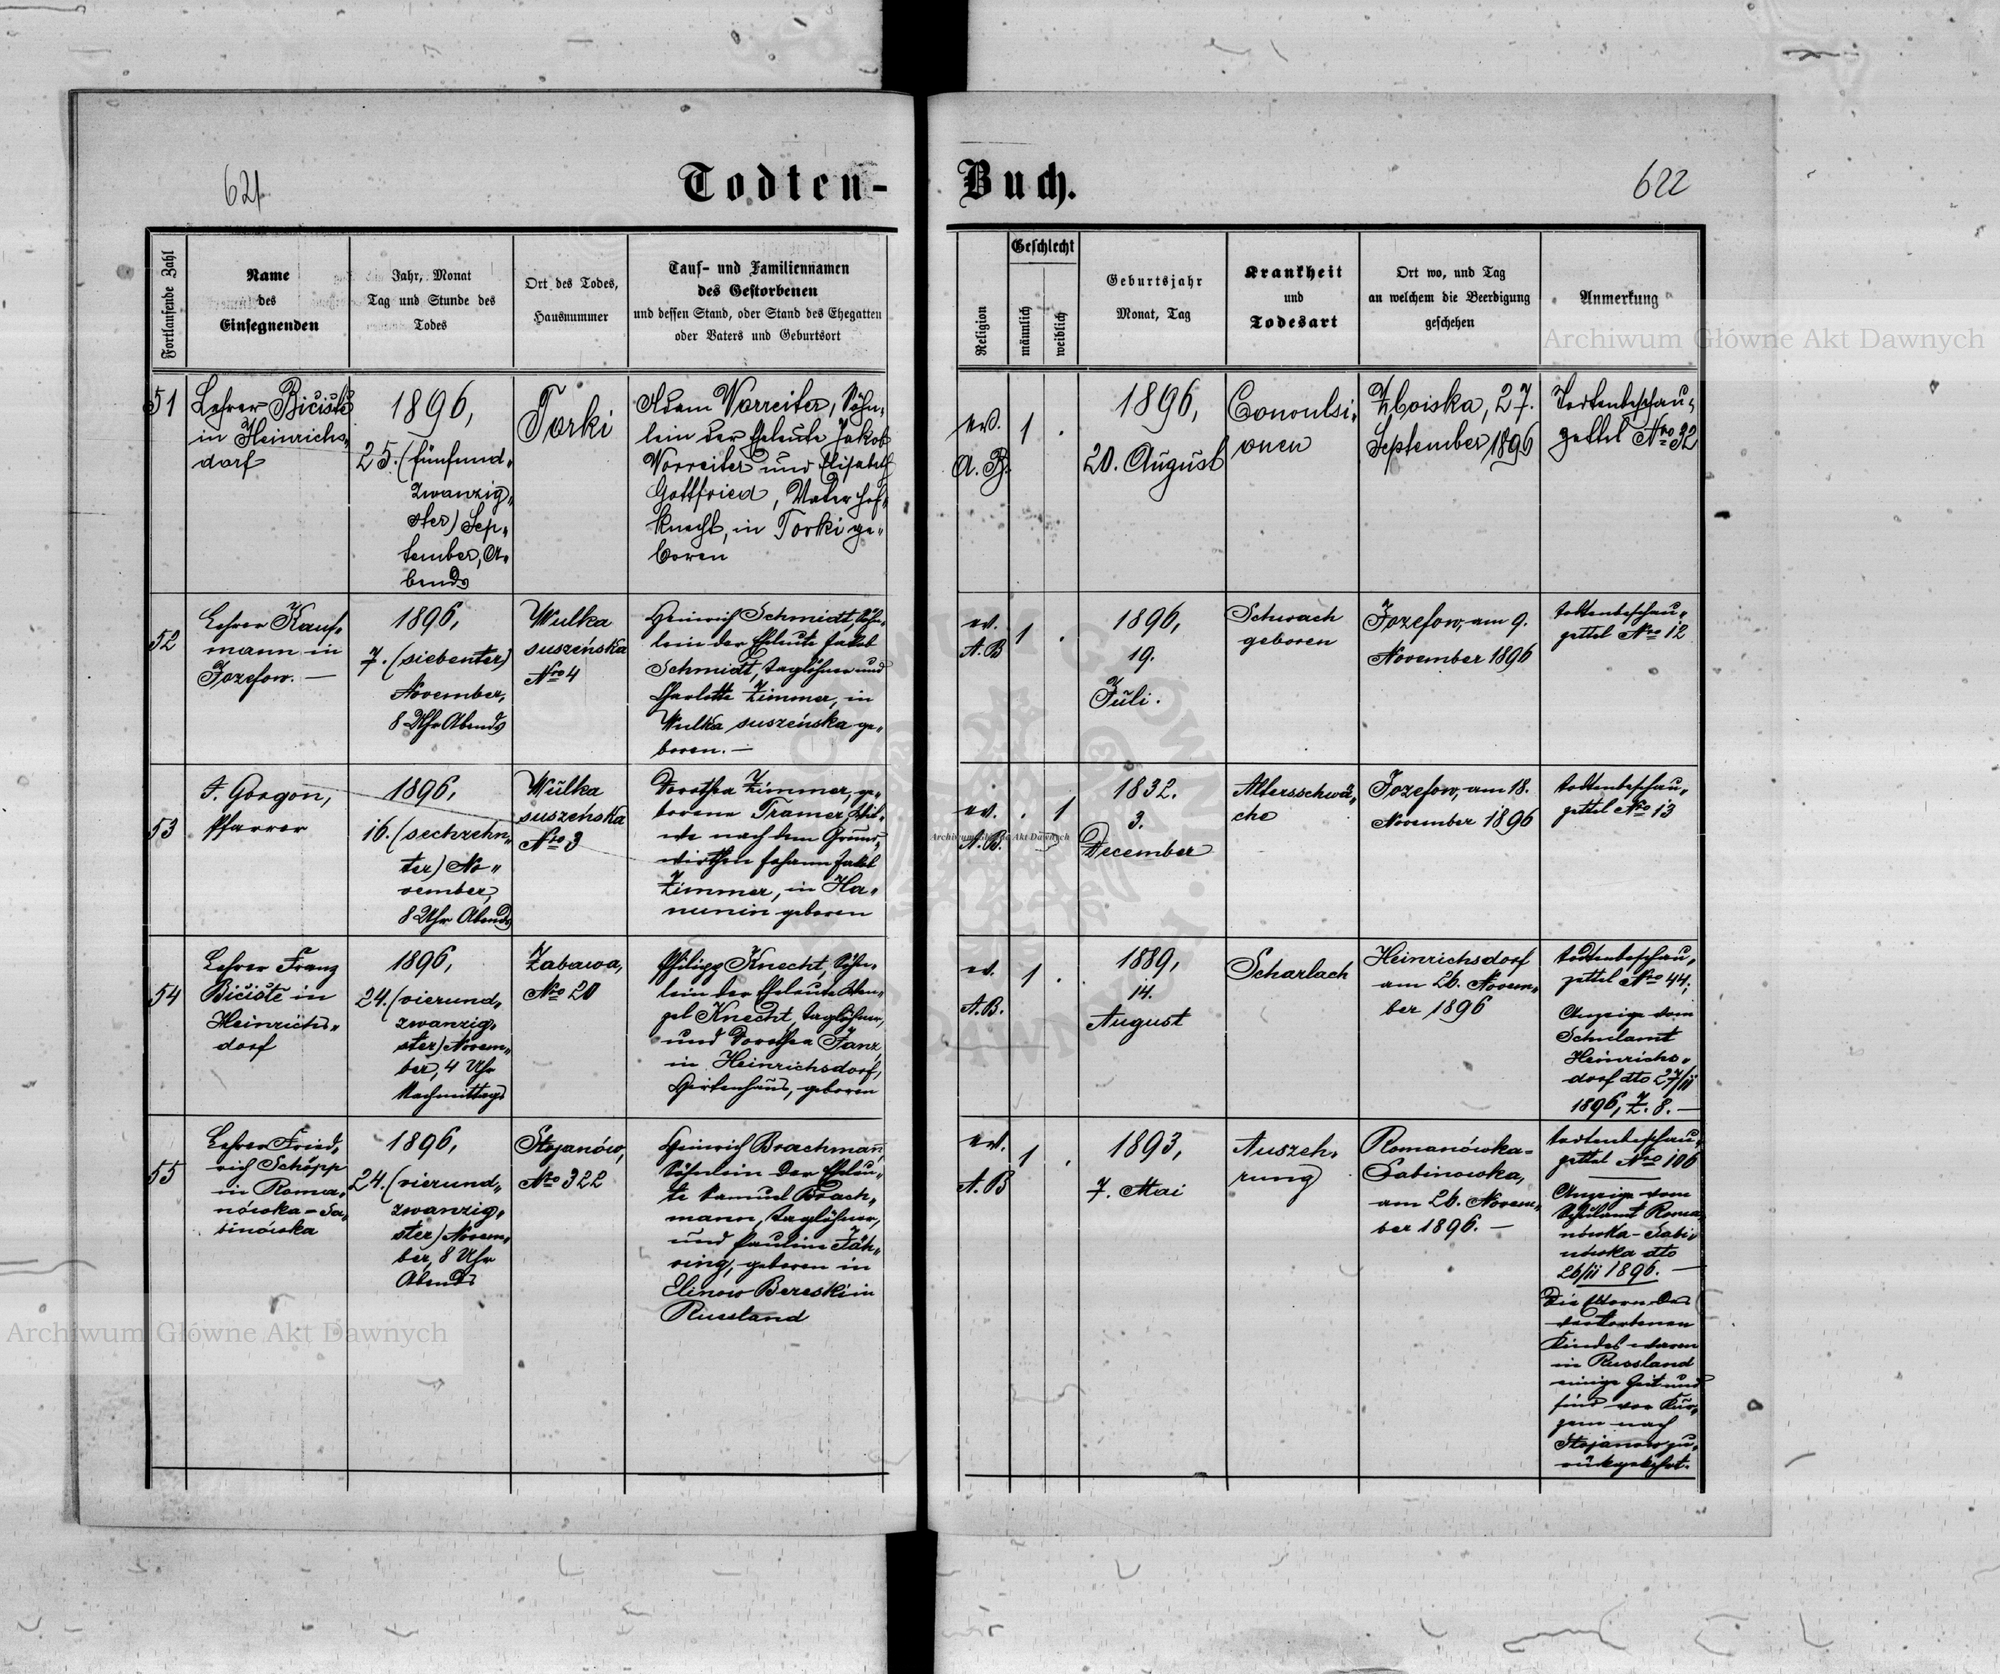 621
Todten-
Buch.
622
Fortlaufende Zahl
Name
des
Einsegnenden
Jahr, Monat
Tag und Stunde des
Todes
Ort des Todes,
Hausnummer
Tauf- und Familiennamen
des Gestorbenen
und dessen Stand, oder Stand des Ehegatten
oder Vaters und Geburtsort
Religion
Geschlecht
männlich
weiblich
Geburtsjahr
Monat, Tag
Krankheit
und
Todesart
Ort wo, und Tag
an welchem die Beerdigung
geschehen
Anmerkung
51
Lehrer Bičiště
in Heinrichs„
dorf
1896,
25. (fünfund„
zwanzig„
ster) Sep„
tember, A„
bends
Torki
Adam Vorreiter, Söhn„
lein der Eheleute Jakob
Vorreiter und Elisabeth
Gottfried, Vater Hof„
knecht, in Torki ge„
boren
ev.
A. B.
1 .
1896,
20. August
Convulsi„
onen
Zboiska, 27.
September 1896
Todtenbeschau„
zettel Nro 32
52
Lehrer Kauf„
mann in
Jozefow. —
1896,
7. (siebenter)
November,
8 Uhr Abends
Wulka
suszeńska
Nro 4
Heinrich Schmidt, Söhn„
lein der Eheleute Jakob
Schmidt, Taglöhner und
Charlotte Zimmer, in
Wulka suszeńska ge„
boren. —
ev.
A. B
1 .
1896,
19.
Juli.
Schwach
geboren
Jozefow, am 9.
November 1896
Todtenbeschau„
zettel Nro 12
53
J. Gorgon,
Pfarrer
1896,
16. (sechzehn„
ter) No„
vember,
8 Uhr Abends
Wulka
suszeńska
Nro 3
Dorothea Zimmer, ge„
borene Tramer, Wit„
we nach dem Grund„
wirthen Johann Jakob
Zimmer, in Ha„
nunin geboren
ev.
A. B.
. 1
1832.
3.
December
Altersschwä„
che
Jozefow, am 18.
November 1896
Todtenbeschau„
zettel Nro 13
54
Lehrer Franz
Bičiště in
Heinrichs„
dorf
1896,
24. (vierund„
zwanzig„
ster) Novem„
ber, 4 Uhr
Nachmittags
Zabawa,
Nro 20
Philipp Knecht, Söhn„
lein der Eheleute Wen„
zel Knecht, Taglöhner,
und Dorothea Janz,
in Heinrichsdorf,
Hirtenhaus, geboren
ev.
A. B.
1 .
1889,
14.
August
Scharlach
Heinrichsdorf
am 26. Novem„
ber 1896
Todtenbeschau„
zettel Nro 44;
Anzeige vom
Schulamt
Heinrichs„
dorf dto 27/11
1896, Z. 8. —
55
Lehrer Fried„
rich Schöpp
in Roma„
nówka-Sa„
binówka
1896,
24. (vierund„
zwanzig„
ster) Novem„
ber, 8 Uhr
Abends
Stojanów,
Nro 322
Heinrich Brachmann,
Söhnlein der Eheleu„
te Samuel Brach„
mann, Taglöhner,
und Pauline Jäh„
ring, geboren in
Elinow Bereski in
Russland
ev.
A. B
1 .
1893,
7. Mai
Auszeh„
rung
Romanówka-
Sabinowka,
am 26. Novem„
ber 1896. —
Todtenbeschau„
zettel Nro 106
Anzeige vom
Schulamt Roma„
nówka-Sabi„
nówka dto
26/11 1896. —
Die Eltern des
verstorbenen
Kindes waren
in Russland
einige Zeit und
sind vor Kur„
zem nach
Stojanow zu„
rückgekehrt.
Archiwum Główne Akt Dawnych
Archiwum Główne Akt Dawnych
Archiwum Główne Akt Dawnych